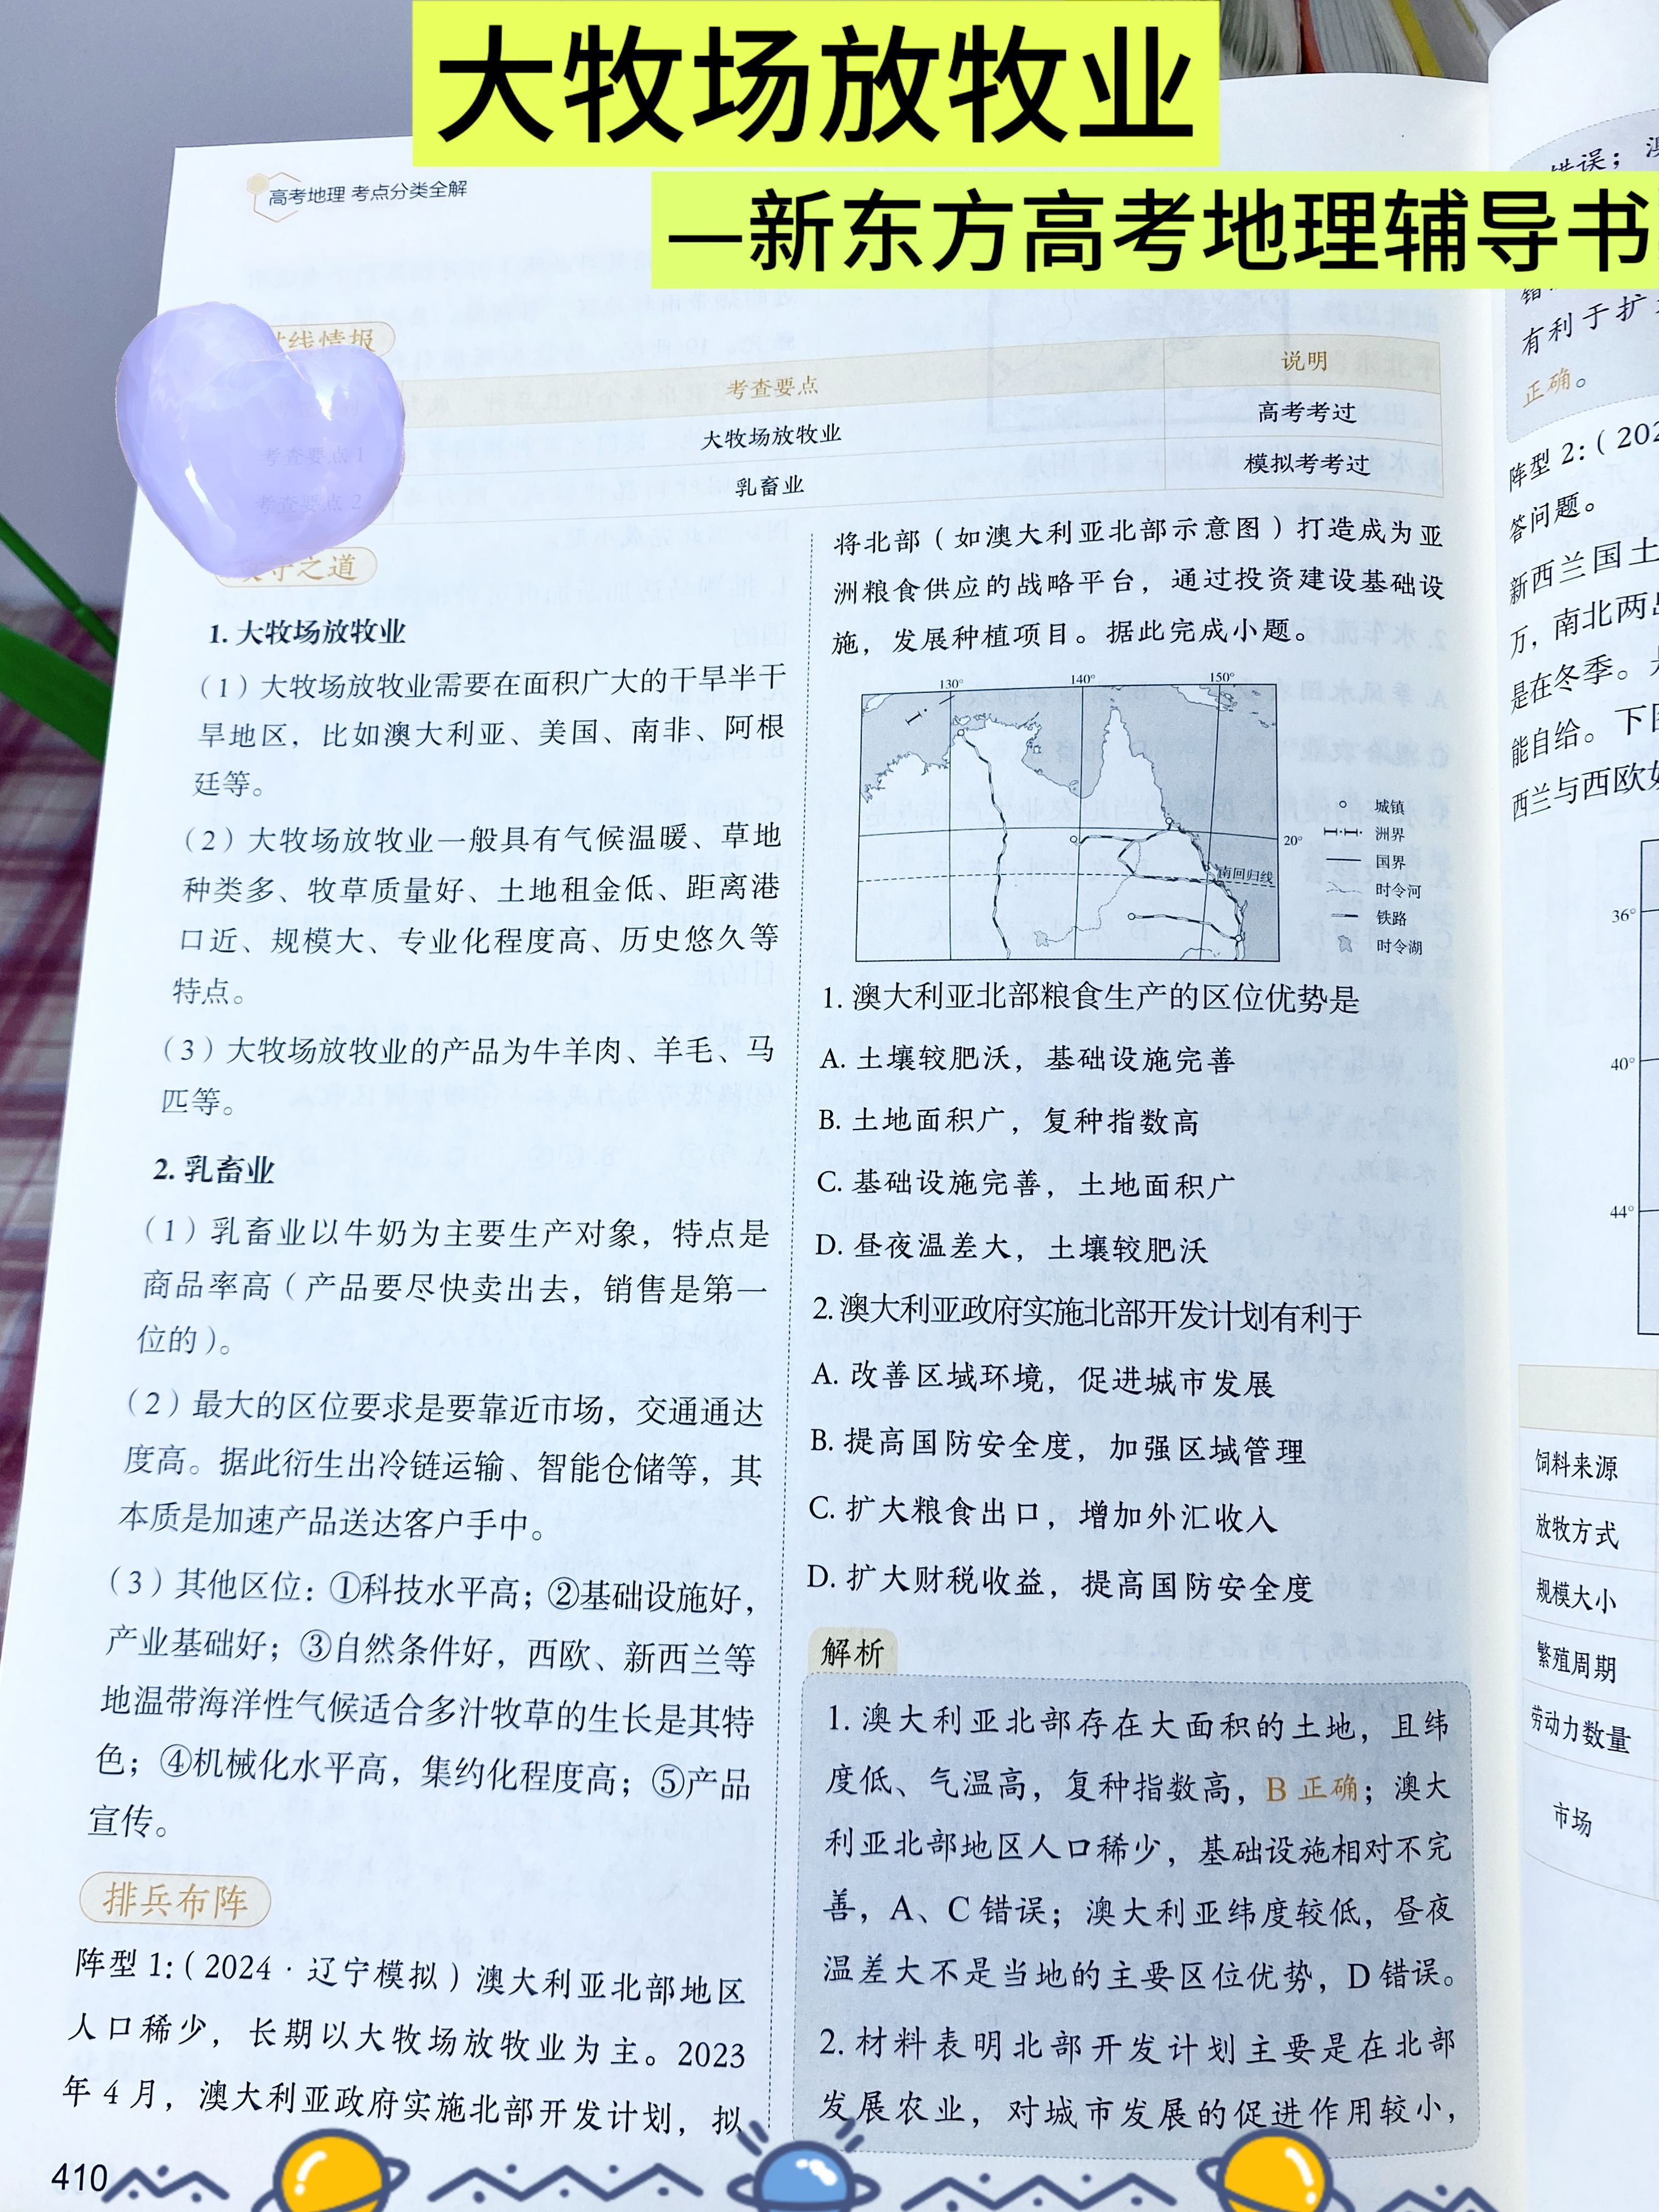 大牧场放牧业
—新东方高考地理辅导书
高考地理 考点分类全解
考查要点
说明
考查要点 1
大牧场放牧业
高考考过
考查要点 2
乳畜业
模拟考考过
1. 大牧场放牧业
（1）大牧场放牧业需要在面积广大的干旱半干
旱地区，比如澳大利亚、美国、南非、阿根
廷等。
（2）大牧场放牧业一般具有气候温暖、草地
种类多、牧草质量好、土地租金低、距离港
口近、规模大、专业化程度高、历史悠久等
特点。
（3）大牧场放牧业的产品为牛羊肉、羊毛、马
匹等。
2. 乳畜业
（1）乳畜业以牛奶为主要生产对象，特点是
商品率高（产品要尽快卖出去，销售是第一
位的）。
（2）最大的区位要求是要靠近市场，交通通达
度高。据此衍生出冷链运输、智能仓储等，其
本质是加速产品送达客户手中。
（3）其他区位：①科技水平高；②基础设施好，
产业基础好；③自然条件好，西欧、新西兰等
地温带海洋性气候适合多汁牧草的生长是其特
色；④机械化水平高，集约化程度高；⑤产品
宣传。
排兵布阵
阵型 1:（2024 · 辽宁模拟）澳大利亚北部地区
人口稀少，长期以大牧场放牧业为主。2023
年 4 月，澳大利亚政府实施北部开发计划，拟
410
将北部（如澳大利亚北部示意图）打造成为亚
洲粮食供应的战略平台，通过投资建设基础设
施，发展种植项目。据此完成小题。
130°
140°
150°
20°
南回归线
城镇
洲界
国界
时令河
铁路
时令湖
1. 澳大利亚北部粮食生产的区位优势是
A. 土壤较肥沃，基础设施完善
B. 土地面积广，复种指数高
C. 基础设施完善，土地面积广
D. 昼夜温差大，土壤较肥沃
2. 澳大利亚政府实施北部开发计划有利于
A. 改善区域环境，促进城市发展
B. 提高国防安全度，加强区域管理
C. 扩大粮食出口，增加外汇收入
D. 扩大财税收益，提高国防安全度
解析
1. 澳大利亚北部存在大面积的土地，且纬
度低、气温高，复种指数高，B 正确；澳大
利亚北部地区人口稀少，基础设施相对不完
善，A、C 错误；澳大利亚纬度较低，昼夜
温差大不是当地的主要区位优势，D 错误。
2. 材料表明北部开发计划主要是在北部
发展农业，对城市发展的促进作用较小，
错误；
有利于扩
正确。
阵型 2:（202
答问题。
新西兰国土
万，南北两
是在冬季。
能自给。下
西兰与西欧
36°
40°
44°
饲料来源
放牧方式
规模大小
繁殖周期
劳动力数量
市场